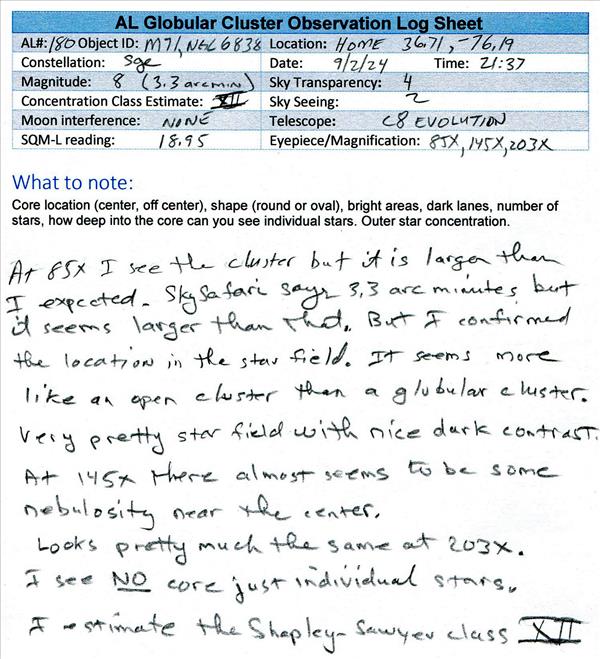 AL Globular Cluster Observation Log Sheet
AL#: 180 Object ID: M71, NGC6838 Location: HOME 36.71, -76.19
Constellation: Sge Date: 9/2/24 Time: 21:37
Magnitude: 8 (3.3 arcmin) Sky Transparency: 4
Concentration Class Estimate: XII Sky Seeing: 2
Moon interference: NONE Telescope: C8 EVOLUTION
SQM-L reading: 18.95 Eyepiece/Magnification: 85X, 145X, 203X
What to note:
Core location (center, off center), shape (round or oval), bright areas, dark lanes, number of
stars, how deep into the core can you see individual stars. Outer star concentration.
At 85x I see the cluster but it is larger than
I expected. SkySafari says 3.3 arc minutes but
it seems larger than that. But I confirmed
the location in the star field. It seems more
like an open cluster than a globular cluster.
Very pretty star field with nice dark contrast.
At 145x there almost seems to be some
nebulosity near the center.
Looks pretty much the same at 203x.
I see NO core just individual stars.
I estimate the Shapley-Sawyer class XII